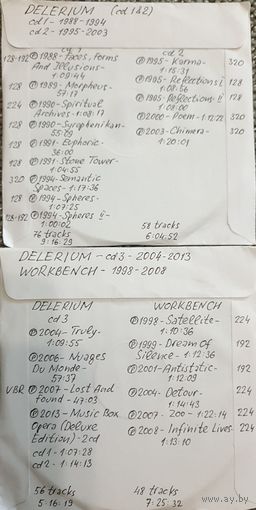 DELERIUM (cd 1&2)
cd1 - 1988-1994
cd2 - 1995-2003
cd 1
128-192 ℗ 1988 - Faces, Forms
And Illusions -
1:09:44
128 ℗ 1989 - Morpheus -
57:17
224 ℗ 1990 - Spiritual
Archives - 1:08:17
128 ℗ 1990 - Syrophenikan -
55:09
128 ℗ 1991 - Euphoric -
36:00
128 ℗ 1991 - Stone Tower -
1:04:55
320 ℗ 1994 - Semantic
Spaces - 1:17:36
128 ℗ 1994 - Spheres -
1:07:25
128-192 ℗ 1994 - Spheres II -
1:00:02
76 tracks
9:16:29
cd 2
℗ 1995 - Karma - 320
1:15:31
℗ 1995 - Reflections I 128
1:08:56
℗ 1995 - Reflections II 128
1:00:00
℗ 2000 - Poem - 1:12:22 320
℗ 2003 - Chimera - 320
1:20:01
58 tracks
6:04:52
DELERIUM - cd 3 - 2004-2013
WORKBENCH - 1998-2008
DELERIUM
cd 3
℗ 2004 - Truly -
1:09:55
℗ 2006 - Nuages
Du Monde -
57:37
VBR ℗ 2007 - Lost And
found - 47:03
℗ 2013 - Music Box
Opera (Deluxe
Edition) - 2cd
cd1 - 1:07:28
cd2 - 1:14:13
56 tracks
5:16:19
WORKBENCH
℗ 1998 - Satellite - 224
1:10:36
℗ 1999 - Dream Of 192
Silence - 1:12:36
℗ 2001 - Antistatic - 192
1:12:09
℗ 2004 - Detour - 224
1:14:43
℗ 2007 - 200 - 1:22:14 224
℗ 2008 - Infinite Lives - 224
1:13:10
48 tracks
7:25:32
www.ay.by